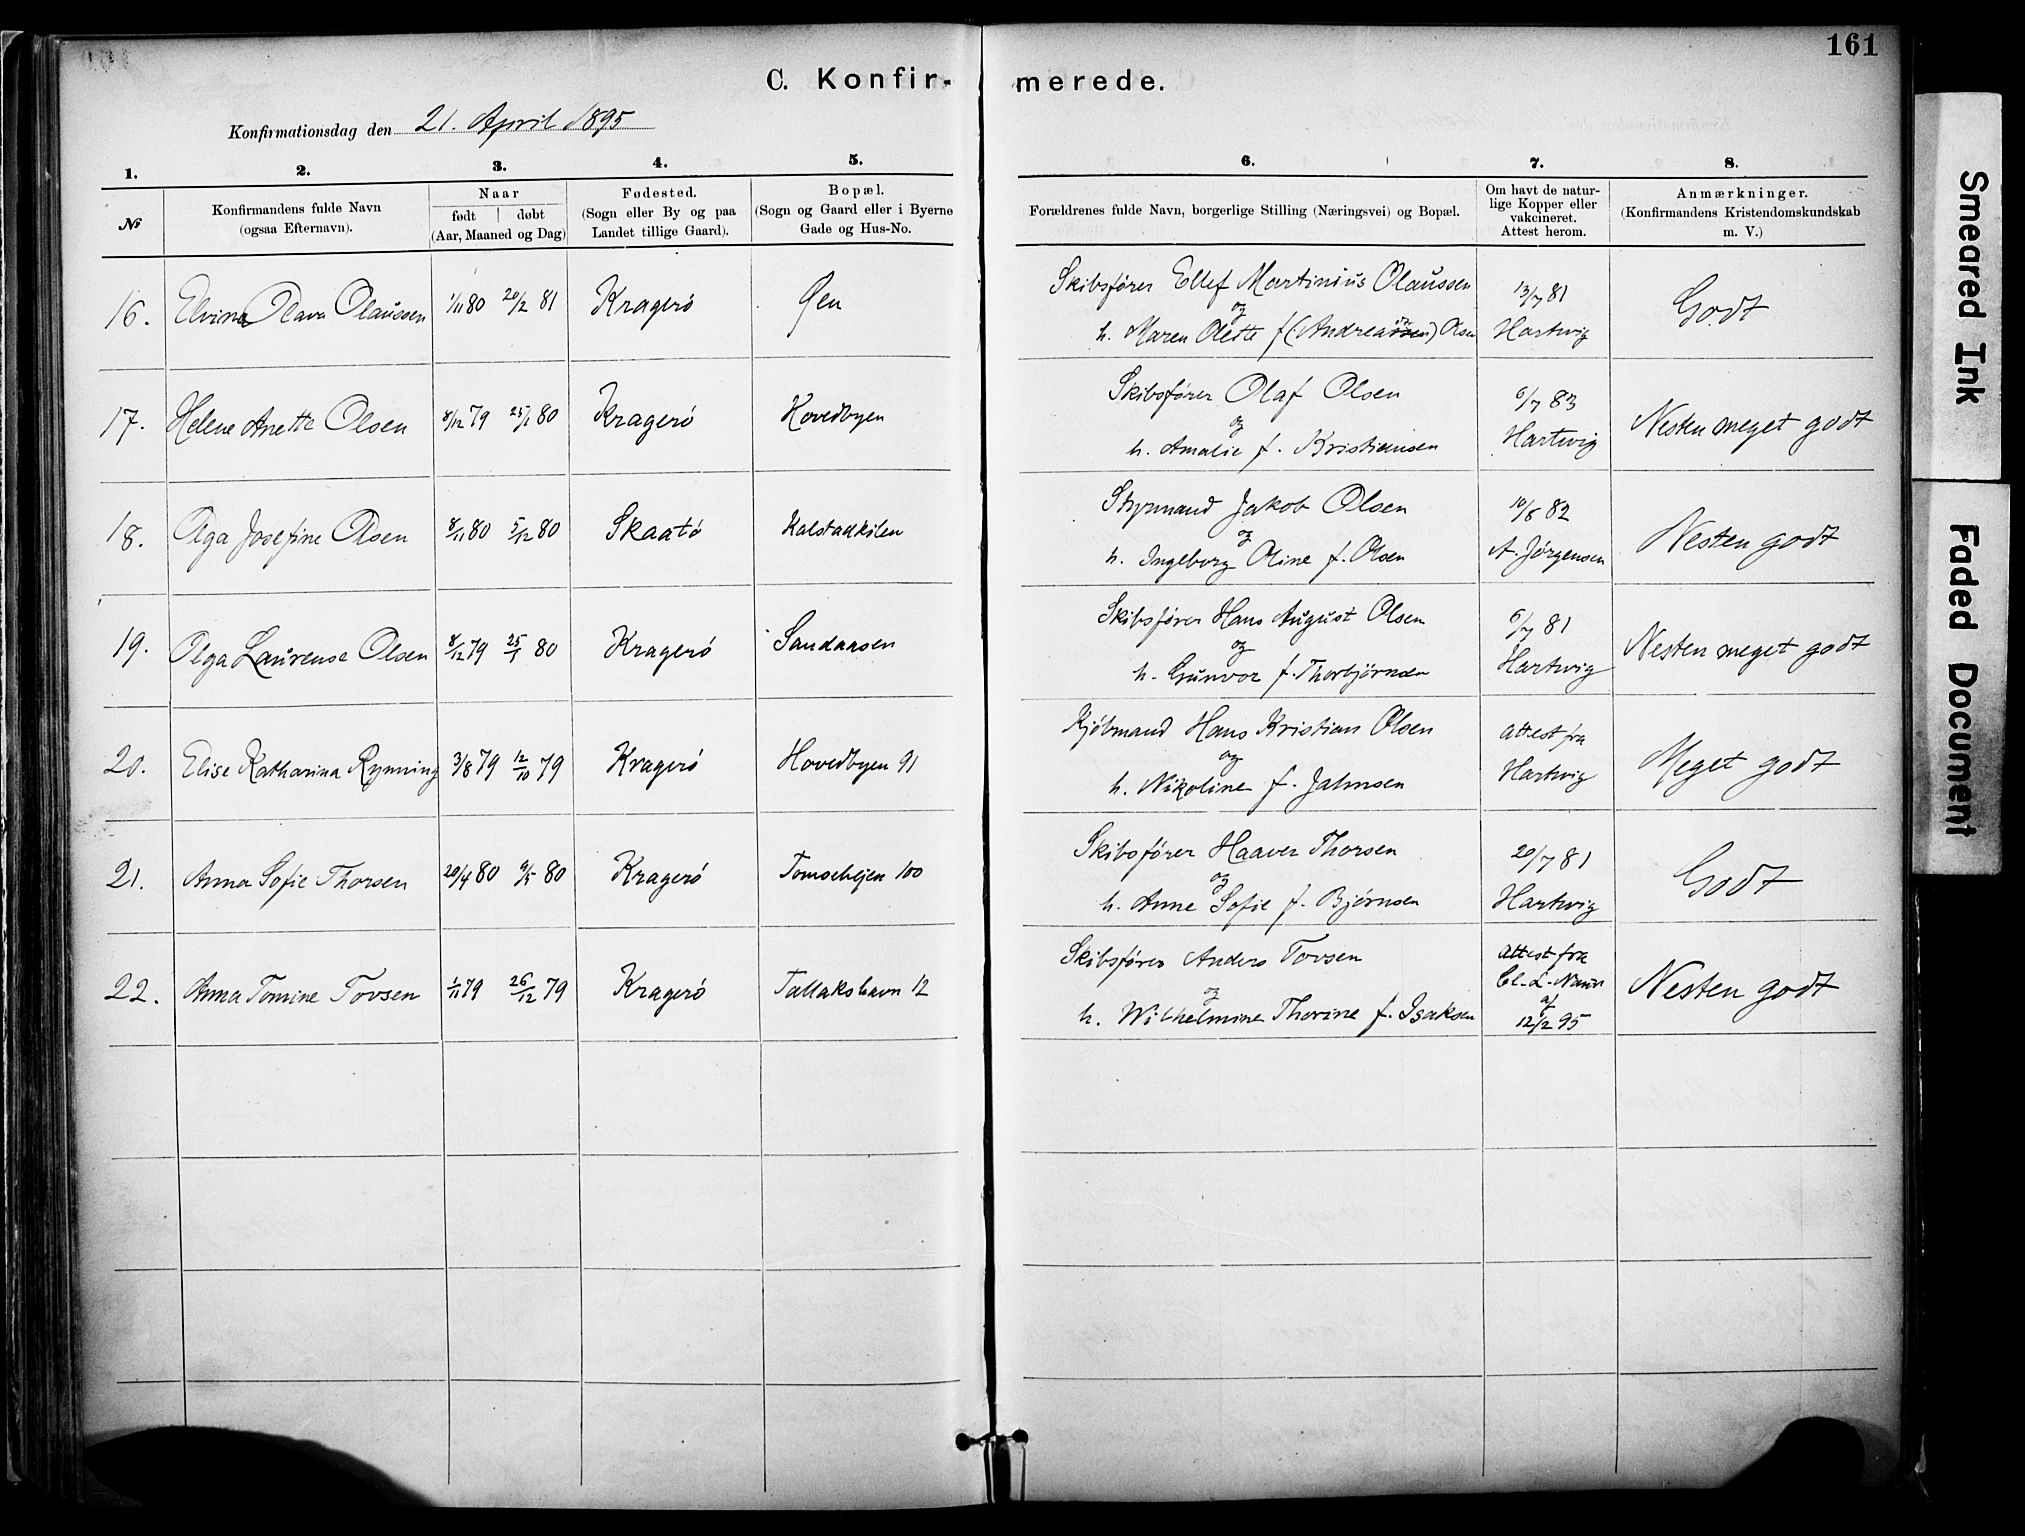 161
C. Konfir- merede.
Konfirmationsdag den 21. April 1895
1. 2. 3. 4. 5. 6. 7. 8.
№
Konfirmandens fulde Navn
(ogsaa Efternavn).
Naar
født | døbt
(Aar, Maaned og Dag)
Fødested.
(Sogn eller By og paa
Landet tillige Gaard).
Bopæl.
(Sogn og Gaard eller i Byerne
Gade og Hus-No.
Forældrenes fulde Navn, borgerlige Stilling (Næringsvei) og Bopæl.
Om havt de natur-
lige Kopper eller
vakcineret.
Attest herom.
Anmærkninger.
(Konfirmandens Kristendomskundskab
m. V.)
16. Elvina Olava Olaussen 1/11 80 20/2 81 Kragerö Øen
Skibsfører Ellef Martinius Olaussen
og
h. Maren Olette f (Andreassen) Olsen
13/7 81
Hartvig
Godt
17. Helene Anette Olsen 8/12 79 25/1 80 Kragerö Hovedbyen
Skibsfører Olaf Olsen
og
h. Amalie f. Kristiansen
6/7 83
Hartvig
Nesten meget godt
18. Olga Josefine Olsen 8/11 80 5/12 80 Skaatö Kalstadkilen
Styrmand Jakob Olsen
og
h. Ingeborg Oline f. Olsen
10/8 82
A. Jørgensen
Nesten godt
19. Olga Laurense Olsen 8/12 79 25/1 80 Kragerö Sandaasen
Skibsfører Hans August Olsen
og
h. Gunvor f. Thorbjørnsen
6/7 81
Hartvig
Nesten meget godt
20. Elise Katharina Rynning 3/8 79 12/10 79 Kragerö Hovedbyen 91
Kjøbmand Hans Kristian Olsen
og
h. Nikoline f. Jahnsen
Attest fra
Hartvig
Meget godt
21. Anna Sofie Thorsen 20/4 80 9/5 80 Kragerö 100
Skibsfører Haaver Thorsen
og
h. Anne Sofie f. Bjørnsen
20/7 81
Hartvig
Godt
22. Anna Tomine Tovsen 1/11 79 26/12 79 Kragerö Tallakshavn 12
Skibsfører Anders Tovsen
og
h. Wilhelmine Thorine f. Isaksen
Attest fra
Cl. L.
af
12/2 95
Nesten godt
Smeared Ink
Faded Document